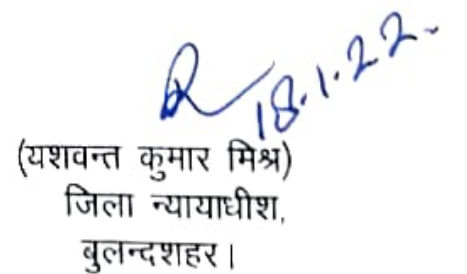 18.1.22.
(यशवन्त कुमार मिश्र)
जिला न्यायाधीश,
बुलन्दशहर।